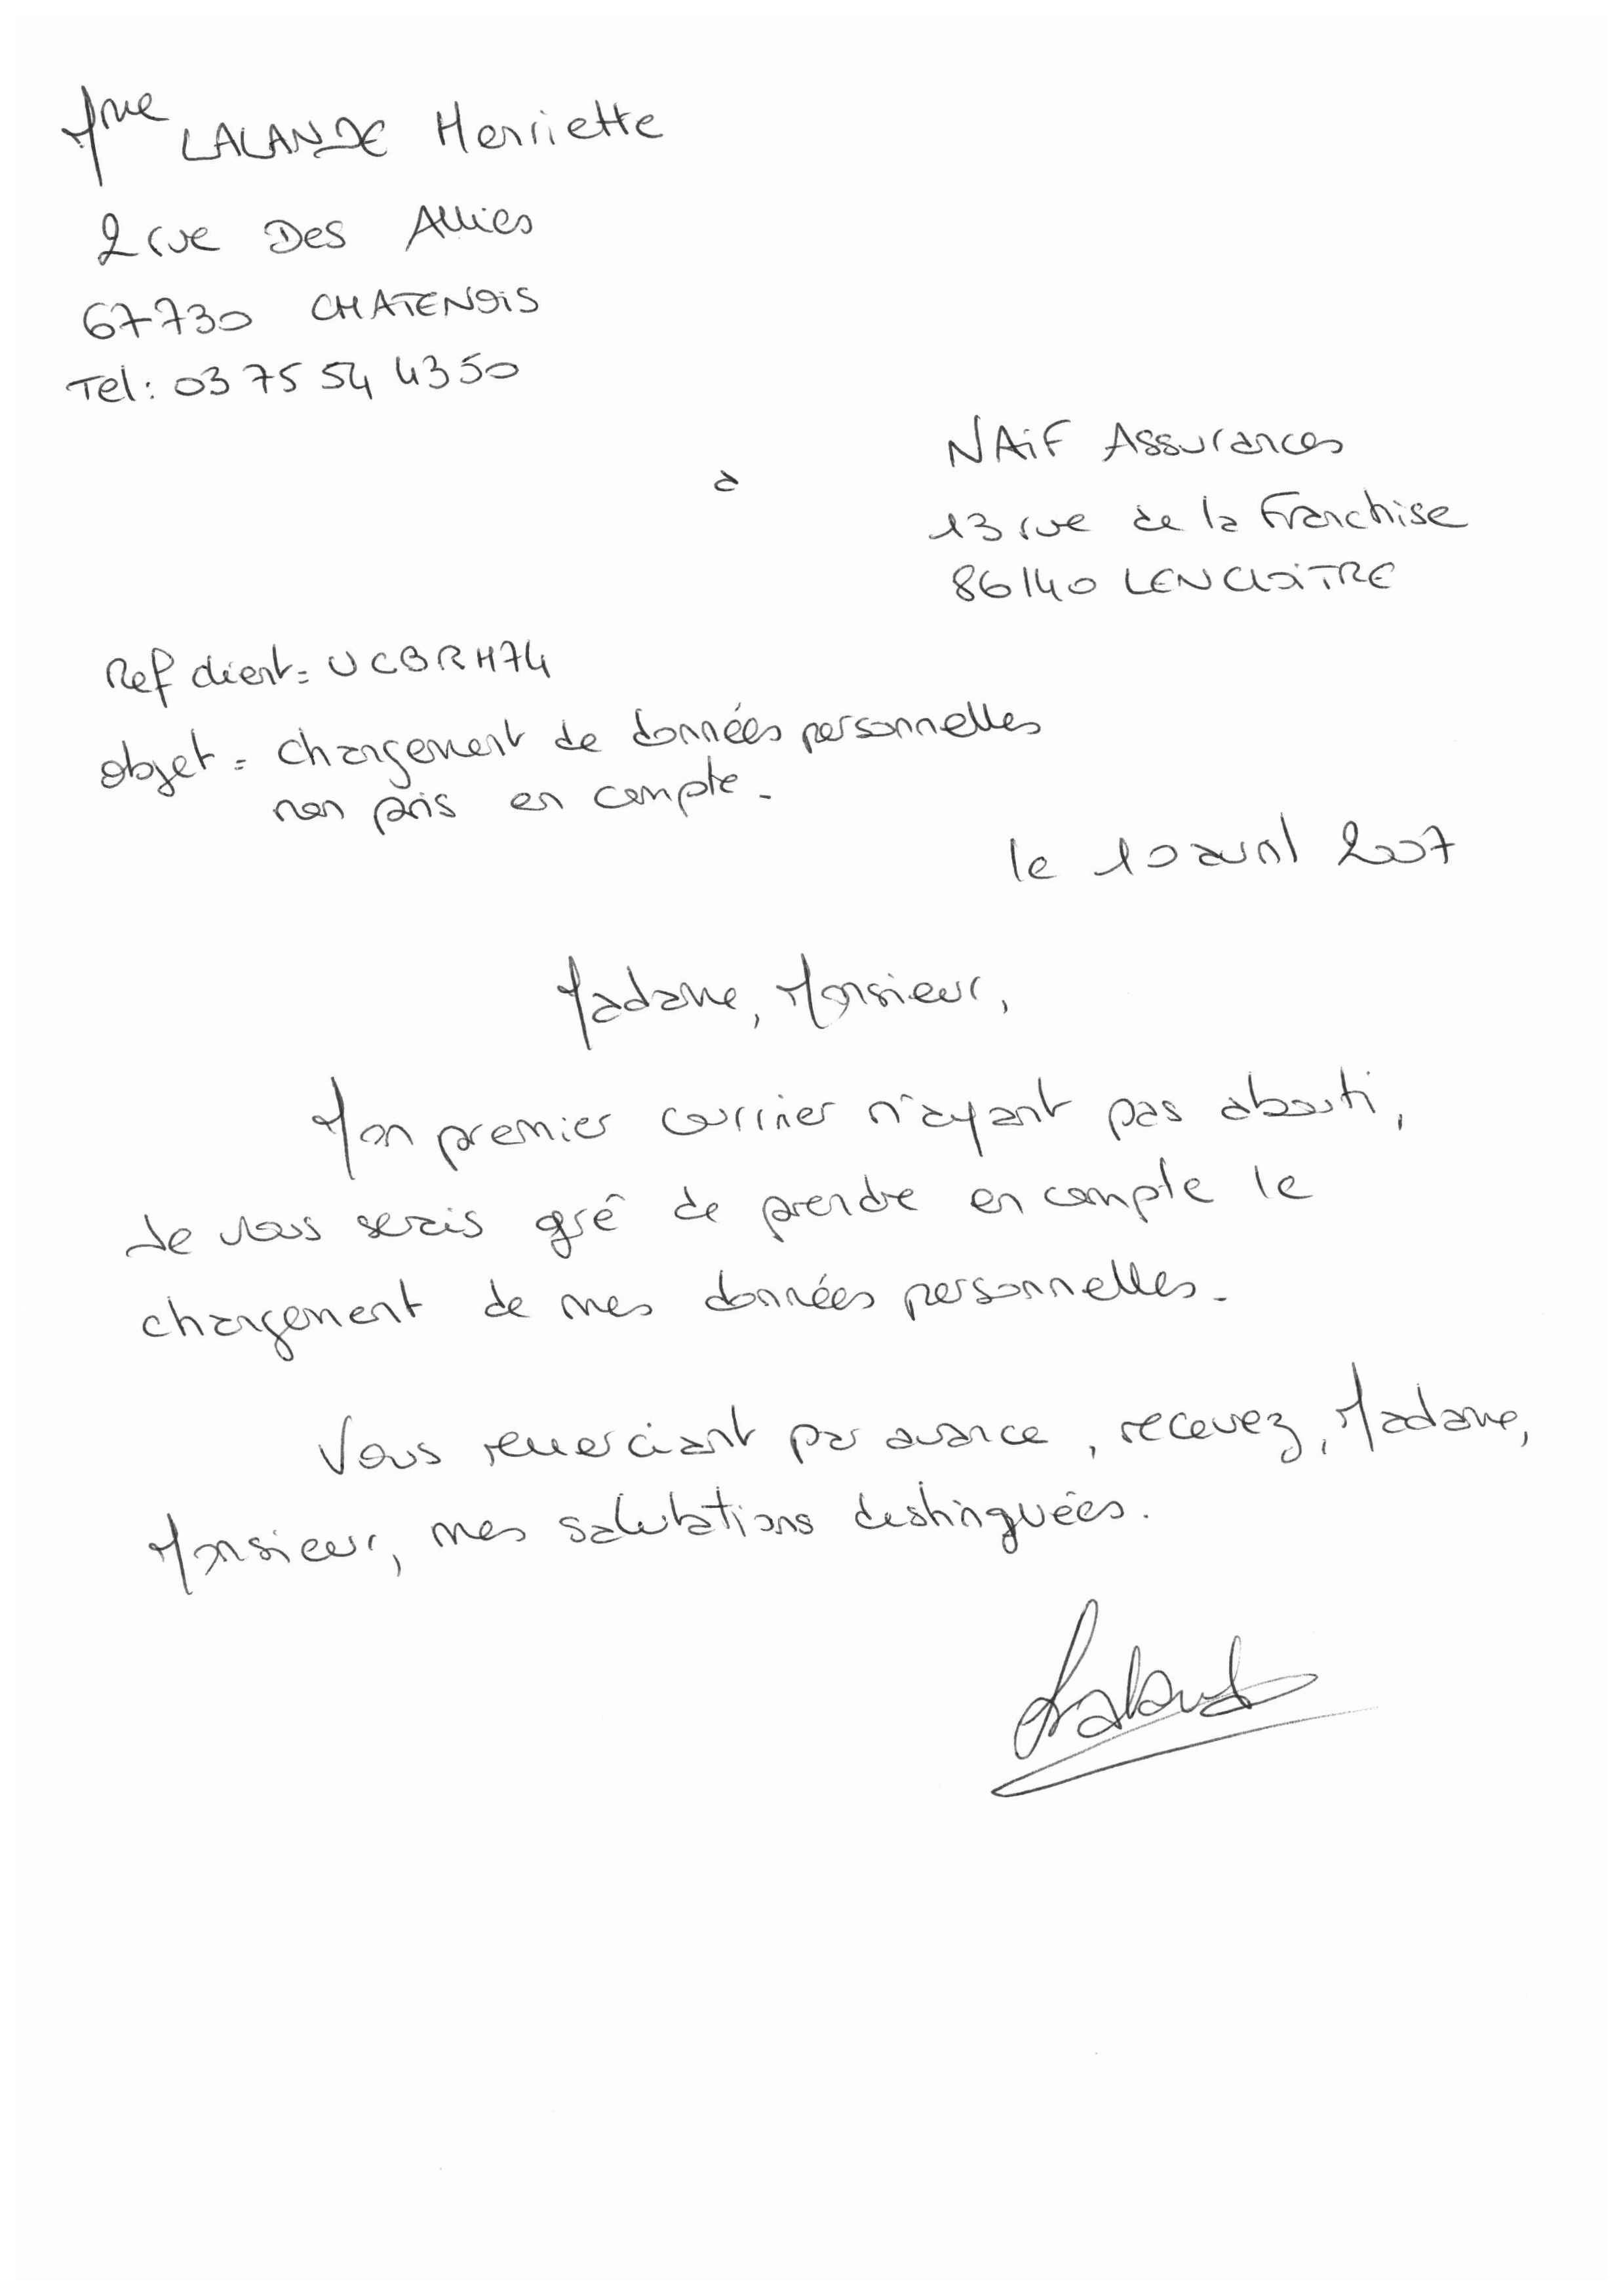 Mme LALANDE Henriette
2 rue Des Allies
67730 CHATENOIS
Tel: 03 75 54 43 50
NAiF Assurances
à
13 rue de la Franchise
86140 LENCLOiTRE
Ref client = UCBRH74
objet = changement de données personnelles
non pris en compte.
le 10 avril 2007
Madame, Monsieur,
Mon premier courrier n'ayant pas abouti,
Je vous serais gré de prendre en compte le
changement de mes données personnelles.
Vous remerciant par avance, recevez, Madame,
Monsieur, mes salutations distinguées.
Lalande